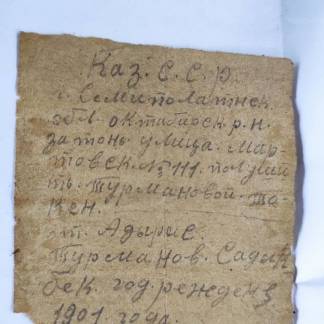 Каз. С. С. Р.
г. Семиполатнск.
обл. октабарск р.н.
затонь улица. Мар-
товск. № 111. полуйит
ть. Турмановой. Жа-
кен.
от. Адырис.
Турманов. Садык
бек. год режденя
1901 года.